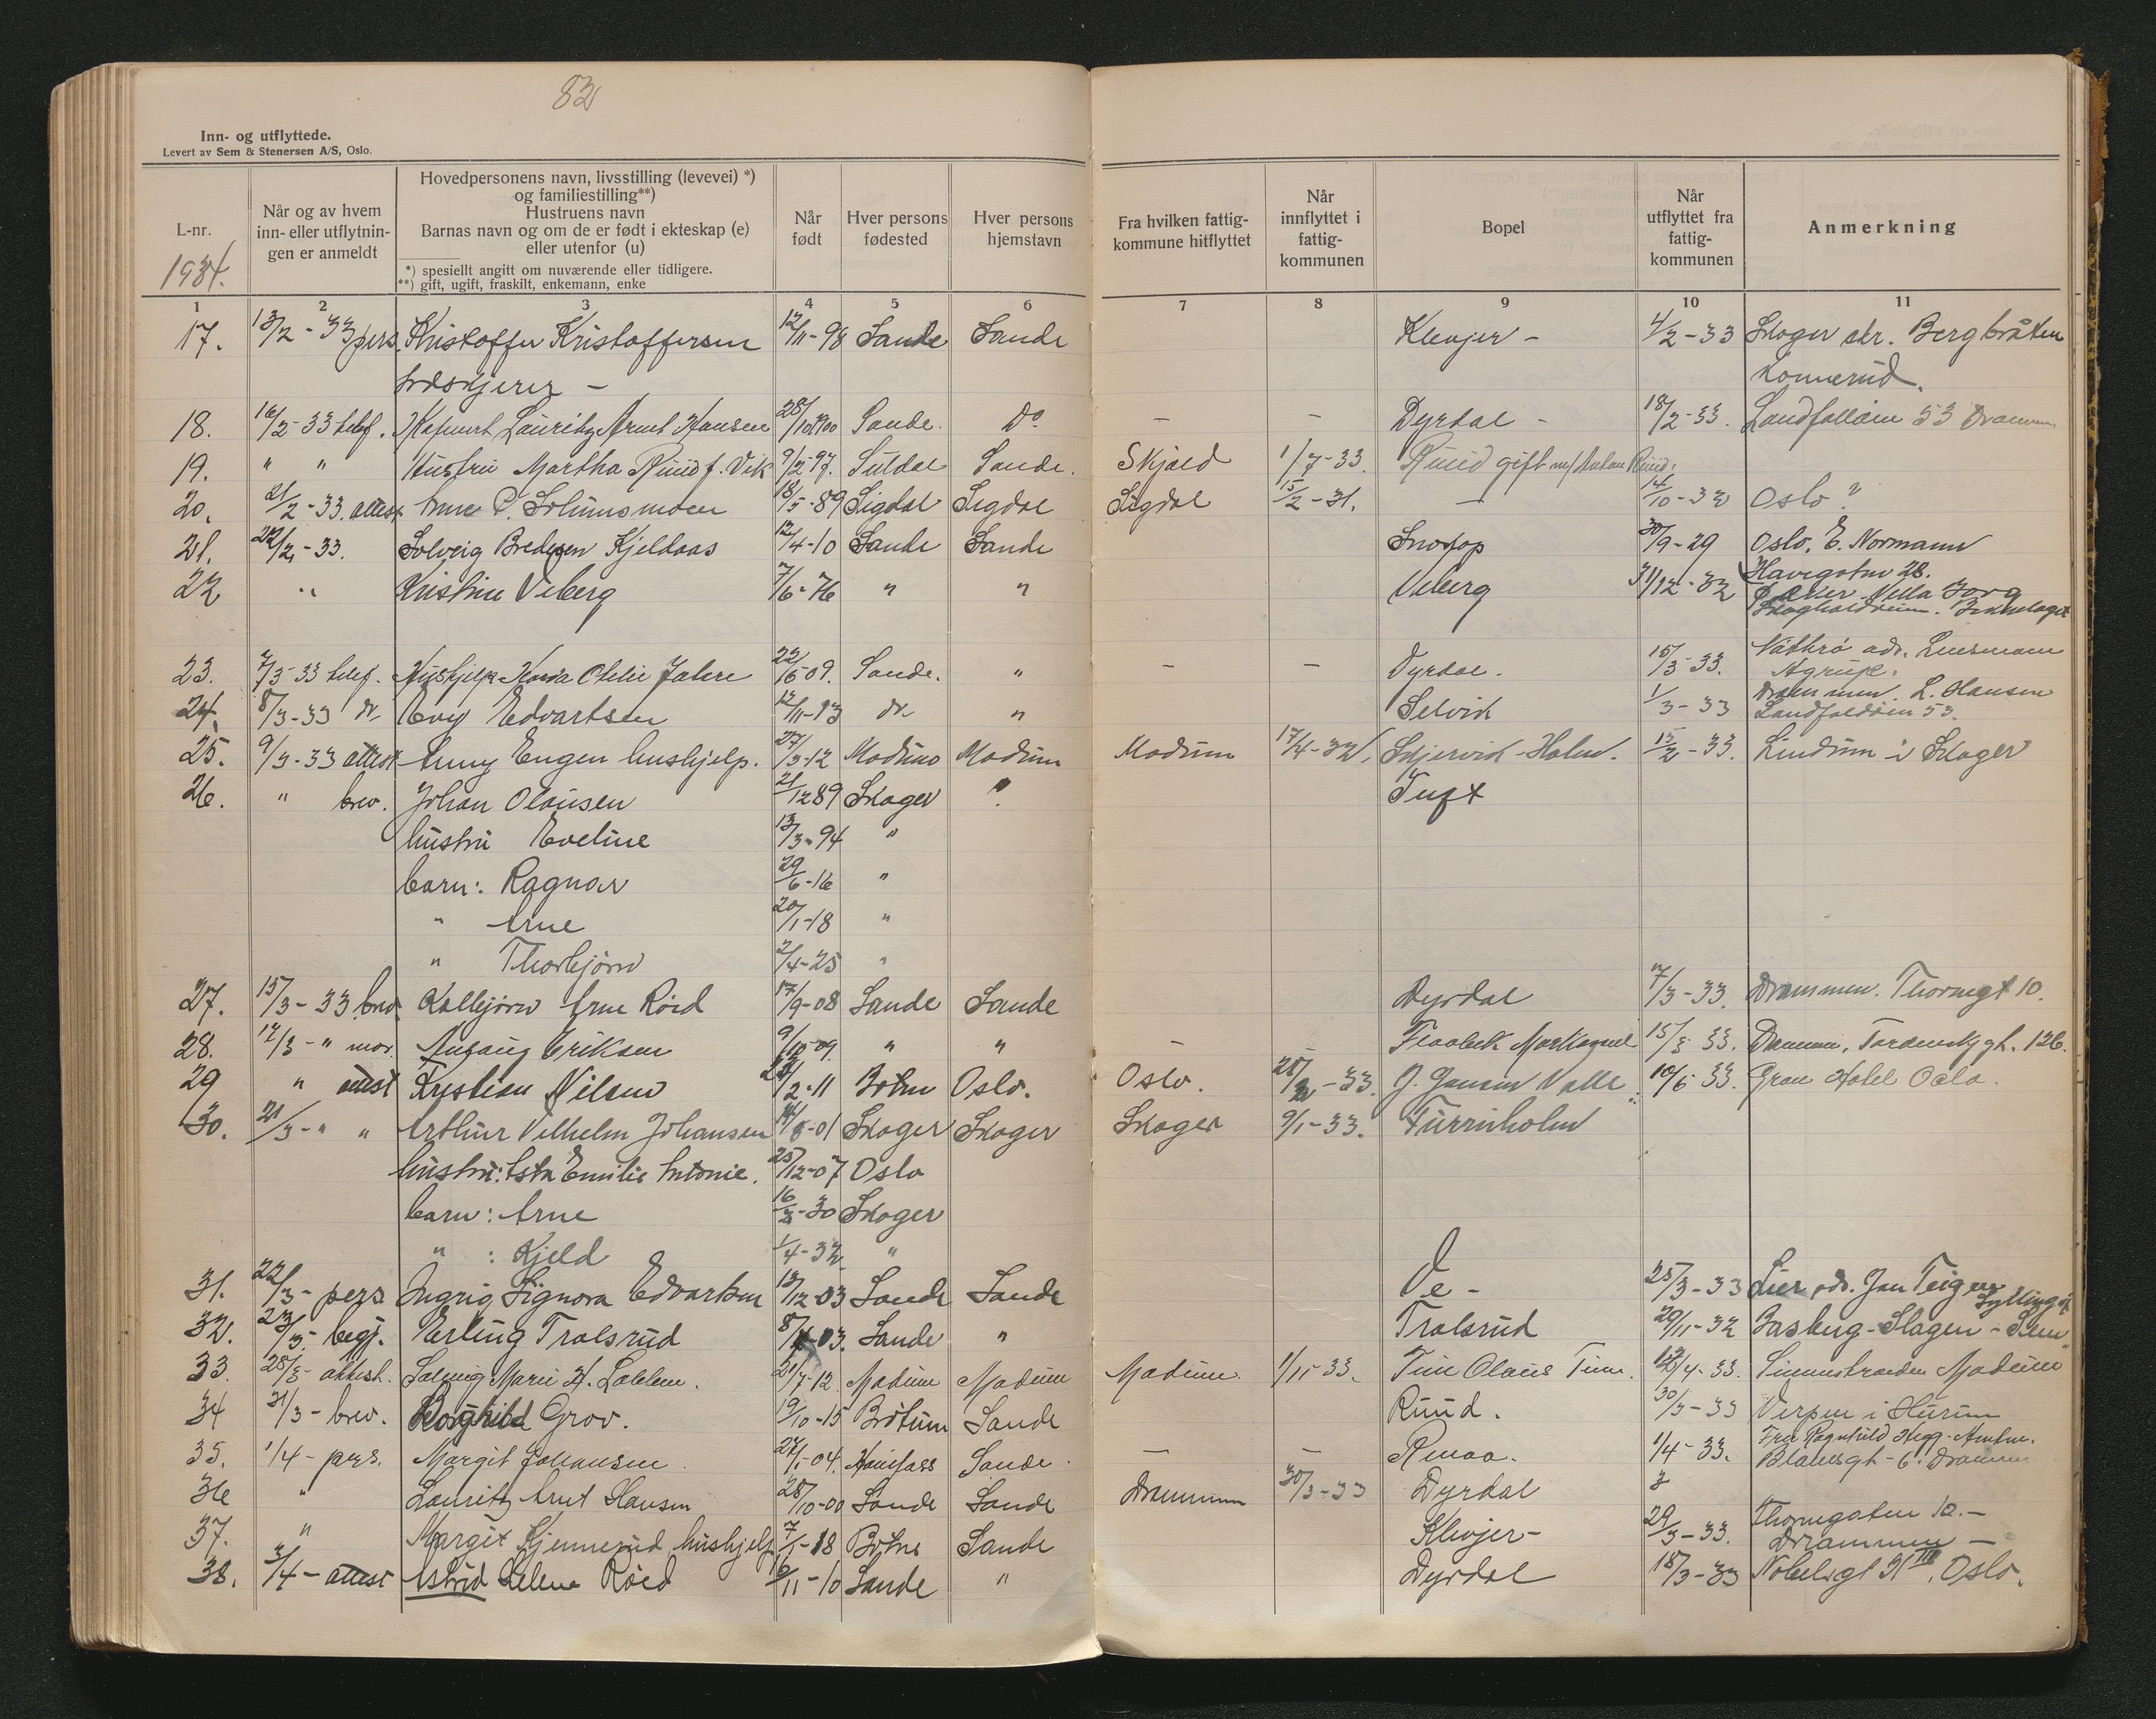 82
Inn- og utflyttede.
Levert av Sem & Stenersen A/S, Oslo.
L-nr. 1934.
Når og av hvem inn- eller utflytnin-gen er anmeldt
Hovedpersonens navn, livsstilling (levevei) *)
og familiestilling**)
Hustruens navn
Barnas navn og om de er født i ekteskap (e)
eller utenfor (u)
*) spesiellt angitt om nuværende eller tidligere.
**) gift, ugift, fraskilt, enkemann, enke
Når født
Hver persons fødested
Hver persons hjemstavn
Fra hvilken fattig-kommune hitflyttet
Når innflyttet i fattig-kommunen
Bopel
Når utflyttet fra fattig-kommunen
Anmerkning
1 2 3 4 5 6 7 8 9 10 11
17. 13/2-33 pers. Kristoffer Kristoffersen 12/11-98 Sande Sande Klevjer - 4/2-33 Skoger adr. Bergbråten
Konnerud.
18. 16/2-33 telef. Lauritz Arnt Hansen 28/10 1900 Sande. Do - - Dyrdal - 18/2-33. Landfalløien 53 Drammen
19. " " Hustru Martha Ruud f. Vik 9/2-97. Suldal Sande. Skjold 1/7-33. Ruud gift m/ Anton Ruud.
20. 21/2-33. attest P. Solumsmoen 18/5-89 Sigdal Sigdal Sigdal 15/2-31. - 14/10-32 Oslo?
21. 22/2-33. Solveig Bredesen Kjeldaas 12/4-10 Sande Sande 30/9-29 Oslo. E. Normann
22 " Kristine Viberg 7/6-76 " " Viberg 31/12-32 28.
Villa
23. 7/3-33 telef. Hushjelp 22/5-09. Sande. " - - Dyrdal. 15/3-33. adr. Lensmann
24. 8/3-33 do Evy Edvartsen 12/11-13 do " Selvik 1/3-33 Drammen. L. Hansen
Landfalløien 53.
25. 9/3-33 attest Anny Engen hushjelp. 27/3-12 Modum Modum Modum 17/4-32. Skjervik - Holm. 15/2-33. Lindum i Skoger
26. " brev. Johan Olausen 21/12 89 Skoger ? Tuft
hustru Eveline 13/3-94 "
barn: Ragnar 29/6-16 "
" Arne 20/1-18 "
" Thorbjørn 2/4-25 "
27. 15/3-33. brev. Kolbjørn Arne Röed 17/9-08 Sande Sande Dyrdal 7/3-33. Drammen. Thornegt 10.
28. 17/3-" Eriksen 9/12-09. " " 15/3 33. Drammen, Tordenskj.gt. 126.
29 " attest Kristian Nilsen 2-11 Botne Oslo. Oslo. 28/2-33. J. Jensen Valle 10/6 33. Grand Hotel Oslo.
30. 21/3-" " Arthur Vilhelm Johansen 01 Skoger Skoger Skoger 9/1-33. Furuholm
hustru: Asta Emilie Antonie. 25/12-07 Oslo
barn: Arne 16/3-30 Skoger
" : Kjeld 1/4-32 "
31. 22/3- pers Ingrig Signora Edvartsen 13/12-03 Sande Sande Ve - 25/3-33 Lier adr. Jan Teigen
Syllingd.
32. 23/3. begj. Erling Tralsrud 8/4-03. Sande " Tralsrud 20/11-32 Basberg - Slagen - Sem
33. 28/3- attest. Solveig Marie H. 21/7-12. Modum Modum Modum 1/11-33. Tuv Olaus Tuv. 12/4-33. Modum
34 31/3- brev. Borghild Grov. 19/10-15 Botne Sande Ruud. 30/3-33 Verpen i Hurum
35. 1/4- pers. Margit Johansen 27/1-04. Sande. - - 1/4-33. Fru Ragnhild
gt - 6. Drammen
36 " Lauritz Arnt Hansen 28/10-00 Sande Sande Drammen 30/3-33 Dyrdal
37. " Margit Kjennerud, hushjelp 7/1-18 Botne Sande Klevjer - 29/3-33. Thornegaten 10. -
Drammen -
38. 3/4- attest Astrid Helene Röed 11-10 Sande " Dyrdal 18/3-33 Nobelsgt 31 III, Oslo.